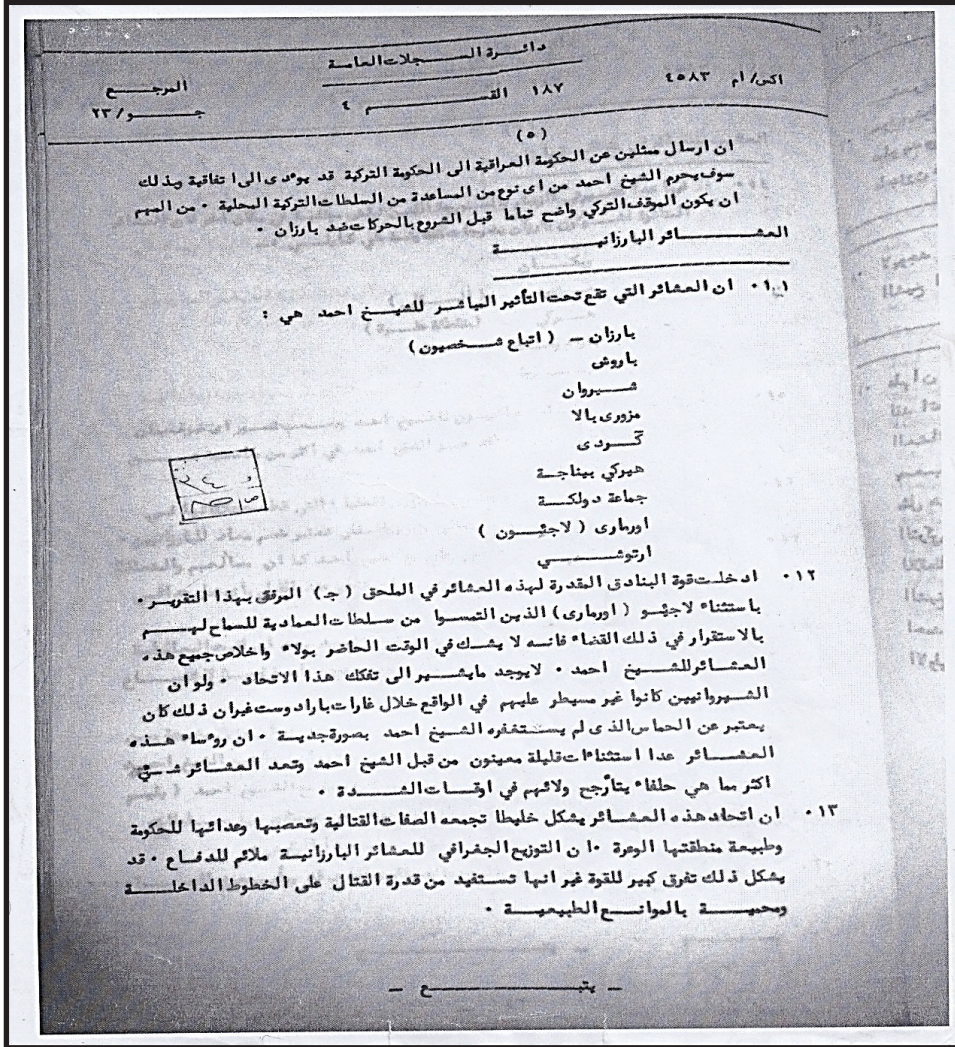 دائرة السجلات العامة
اكس/ ام ٤٥٨٣
١٨٧ القسم ٤
المرجع
جو/ ٢٣
( ٥ )
ان ارسال ممثلين عن الحكومة العراقية الى الحكومة التركية قد يوءدى الى اتفاقية وبذلك
سوف يحرم الشيخ احمد من اى نوع من المساعدة من السلطات التركية المحلية ٠ من المهم
ان يكون الموقف التركي واضح تماما قبل الشروع بالحركات ضد بارزان ٠
العشائر البارزانية
ان العشائر التي تقع تحت التأثير المباشر للشيخ احمد هي :
بارزان – ( اتباع شخصيون )
باروش
شيروان
مزورى بالا
گردى
هيركي بيناجة
جماعة دولكة
اورمارى ( لاجئون )
ارتوشي
١٢ ٠ ادخلت قوة البنادق المقدرة لهذه العشائر في الملحق ( جـ ) المرفق بهذا التقرير ٠
باستثناء لاجئو ( اورمارى ) الذين التمسوا من سلطات العمادية للسماح لهم
بالاستقرار في ذلك القضاء فانه لا يشك في الوقت الحاضر بولاء واخلاص جميع هذه
العشائر للشيخ احمد ٠ لايوجد مايشير الى تفكك هذا الاتحاد ٠ ولو ان
الشيروانيين كانوا غير مسيطر عليهم في الواقع خلال غارات بارادوست غيران ذلك كان
يعتبر عن الحماس الذى لم يستغفره الشيخ احمد بصورة جدية ٠ ان روءساء هذه
العشائر عدا استثناءات قليلة معينون من قبل الشيخ احمد وتعد العشائر شيئ
اكثر مما هي حلفاء يتأرجح ولائهم في اوقات الشدة ٠
١٣ ٠ ان اتحاد هذه العشائر يشكل خليطا تجمعه الصفات القتالية وتعصبها وعدائها للحكومة
وطبيعة منطقتها الوعرة ٠ ان التوزيع الجغرافي للعشائر البارزانية ملائم للدفاع ٠ قد
يشكل ذلك تفرق كبير للقوة غير انها تستفيد من قدرة القتال على الخطوط الداخلة
ومحمية بالموانع الطبيعية ٠
– يتبع –